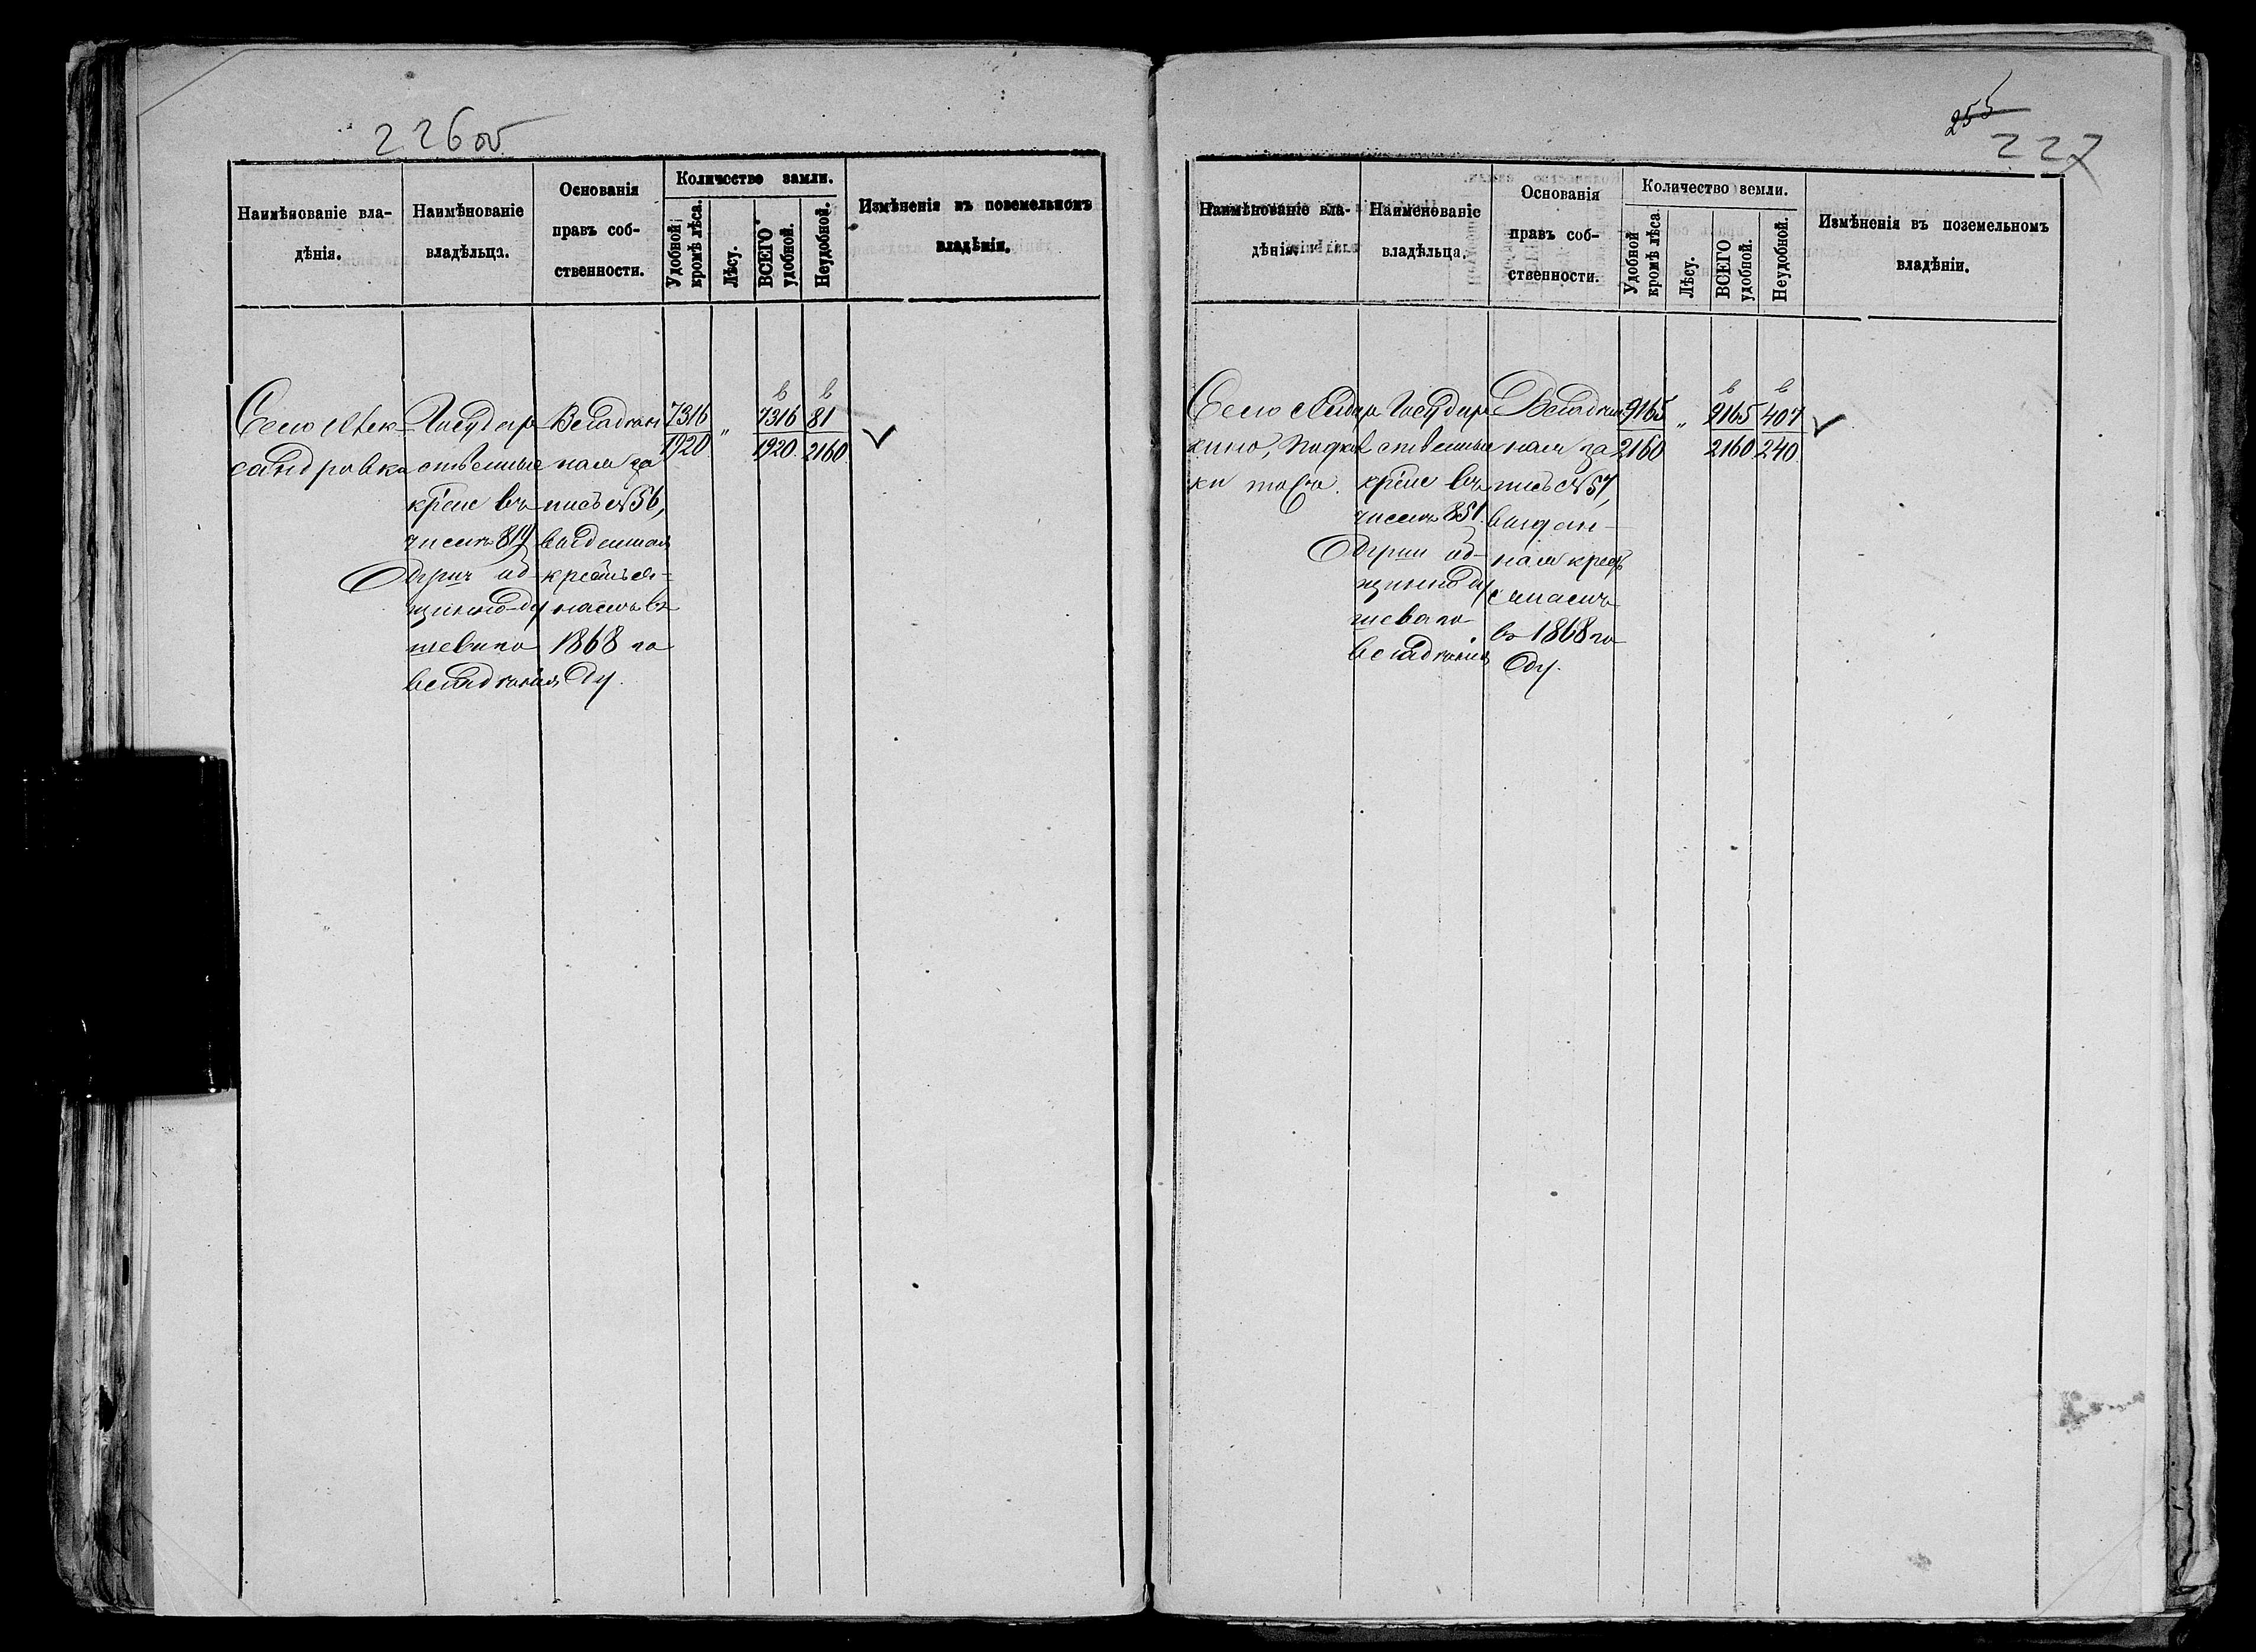 226 об
Наимѣнованіе вла-
дѣнія.
Наимѣнованіе
владѣльца.
Основанія
правъ соб-
ственности.
Количество земли.
Удобной
кромѣ лѣса.
Лѣсу.
ВСЕГО
удобной.
Неудобной.
Измѣненія въ поземельномъ
владѣніи.
Село Алек-
сандровка
Государ
ственные
крест въ
числѣ 819
душъ об-
щинно-ду
шеваго
владѣнія
Владѣн
ная за
пись №56,
выданная
крестья-
намъ въ
1868 го
ду.
7316
1920
"
в
7316
1920.
в
81
2160
255
227
Наимѣнованіе вла-
дѣнія.
Наименованіе
владѣльца.
Основанія
правъ соб-
ственности.
Количество земли.
Удобной
кромѣ лѣса.
Лѣсу.
ВСЕГО
удобной.
Неудобной.
Измѣненія въ поземельномъ
владѣніи.
Село
кино,
тожъ.
Государ
ственные
крест въ
числѣ 851
души об-
щинно ду
шеваго
владѣнія
Владѣн
ная за
пись №57,
выдан-
ная крес
намъ
въ 1868 го
ду.
9165
2160
"
в
9165
2160
в
407
240